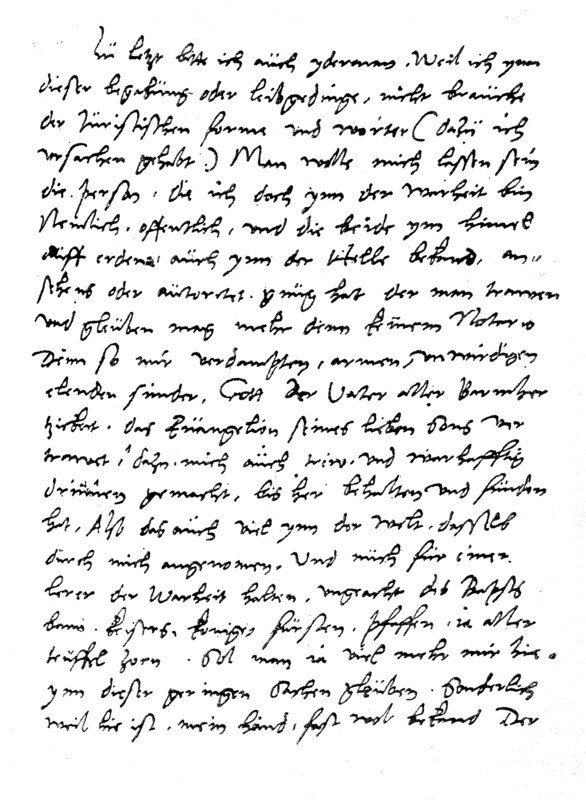 Zu letzt bitte ich auch yderman, Weil ich ynn
dieser begabung oder leibgedinge, nicht brauche
der Juristischen forme und worter (dazu ich
ursachen gehabt) Man wolle mich lassen sein
die person, die ich doch ynn der warheit bin
Nemlich, offentlich, und die beide ym himel
auff erden auch ynn der Helle bekand, an=
sehens oder autoritet gnug hat, der man trawen
und gleuben mag mehr denn keinem Notario
Denn so mir verdampten, armen, unwirdigen
elenden sunder, Gott der Vater aller Barmher
tzikeit, das Euangelion seines lieben Sons ver
trawet, dazu mich auch trew und warhafftig
drinnen gemacht, bis her behalten und funden
hat, Also das auch viel ynn der welt, dasselb
durch mich angenomen, Und mich fur einen
lerer der Warheit halten, ungeacht des Bapsts
bann, keisers, konige, fursten, pfaffen, ia aller
teuffel zorn, Sol man ia viel mehr mir hie
ynn dieser geringen sachen gleuben, Sonderlich
weil hie ist, mein hand, fast wol bekand Der